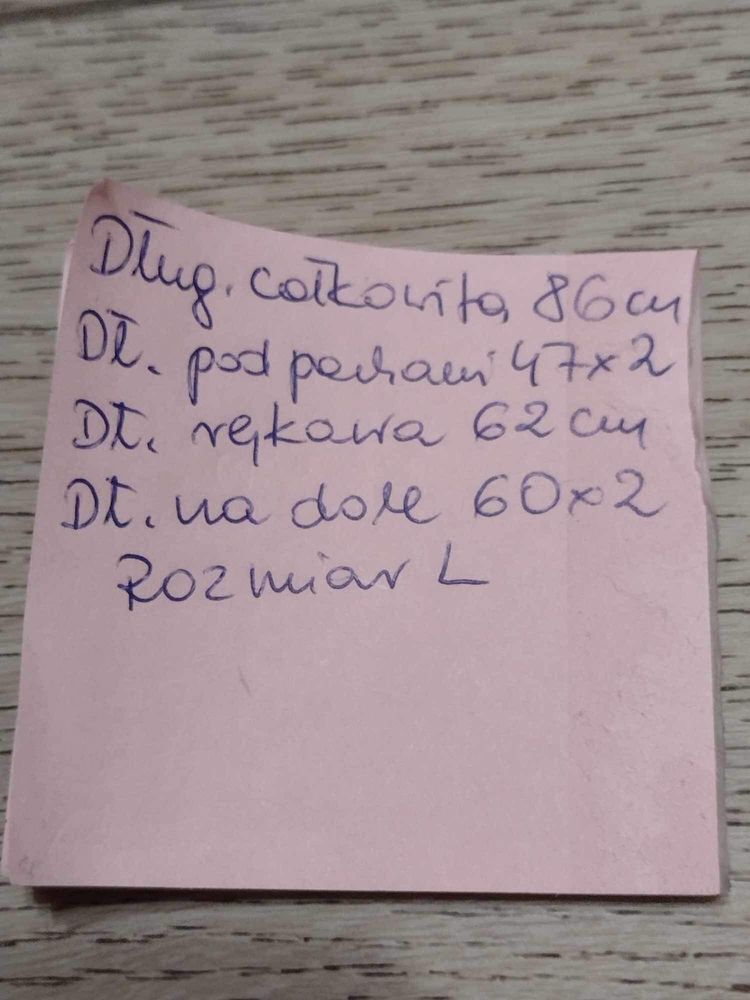 Dług. całkowita 86 cm
Dł. pod pachami 47x2
Dł. rękawa 62 cm
Dł. na dole 60x2
Rozmiar L